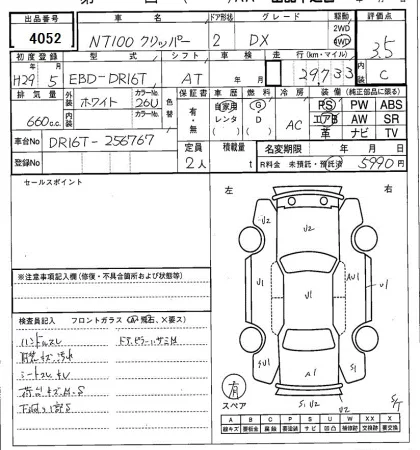 出品番号 車名 ドア形状 グレード 駆動 評価点
4052 NT100 クリッパー 2 DX 2WD 4WD 3.5
初度登録 型式 シフト 車検 走行(km・マイル) 内装
H29年 5月 EBD-DR16T AT 年 月 29,733 C
排気量 外装 カラーNo. 色替 保証書 車歴 燃料 冷房 装備(純正部品に限る)
660c.c. ホワイト 26U 有・無 自家用 レンタ G D AC PS PW ABS
エアB AW SR
革 ナビ TV
車台No DR16T-256767 定員 積載量 名変期限 年 月 日
登録No 2人 t R料金 未預託・預託済 5990円
セールスポイント
左 右
U2
U2
U1 U1 U1 U1
SU1 A1 S1
S1 U2
U2
S/T
※注意事項記入欄(修復・不具合箇所および状態等)
検査員記入 フロントガラス(A・飛石、X要ス)
ハンドルスレ
内装キズ汚れ
シートスレ
荷台キズ
下廻り
有
スペア
A B C P S U W X XX
線キズ 要板金 腐蝕 要塗装 サビ 凹凸 補修跡 交換跡 要交換